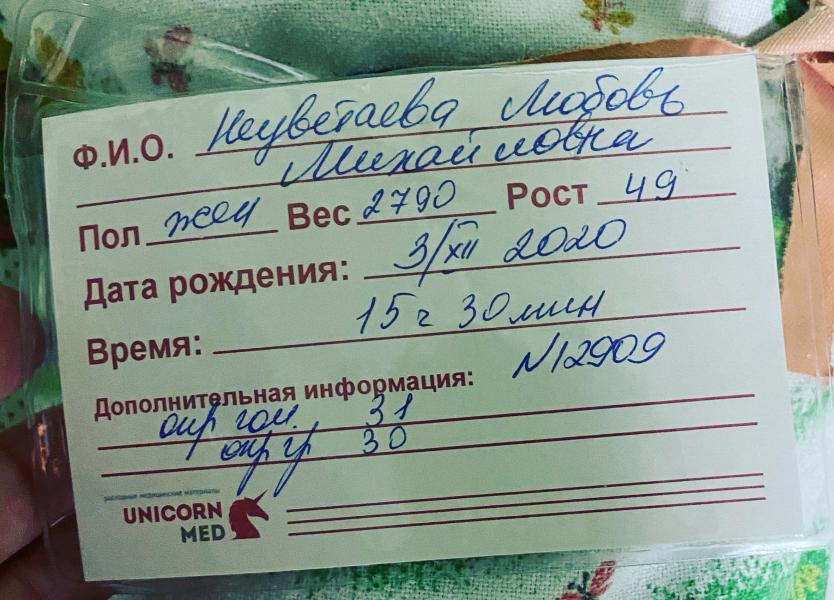 Ф.И.О. Неуветаева Любовь
Михайловна
Пол жен Вес 2790 Рост 49
Дата рождения: 3/XII 2020
Время: 15 ч 30 мин
Дополнительная информация: N12909
окр гол. 31
окр гр 30
расходные медицинские материалы
UNICORN
MED